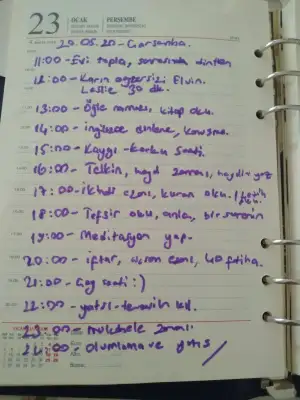 23
OCAK
PERŞEMBE
20.05.20 - Çarşamba.
11:00 - Evi topla, sonrasında dinlen
12:00 - Karın egzersizi Elvin.
Leslie 30 dk.
13:00 - Öğle namazı, kitap oku.
14:00 - ingilizce dinleme, konuşma.
15:00 - Kaygı - Korku Saati.
16:00 - Telkin, hayd zamanı,
17:00 - ikindi ezanı, kuran oku.
18:00 - Tefsir oku, anla, bir surenin
19:00 - Meditasyon yap.
20:00 - iftar, ezanı, 40 fatiha.
21:00 - Çay saati :)
22:00 - yatsı - teravih kıl.
23:00 - mukabele zamanı
24:00 - olumlama ve yatış